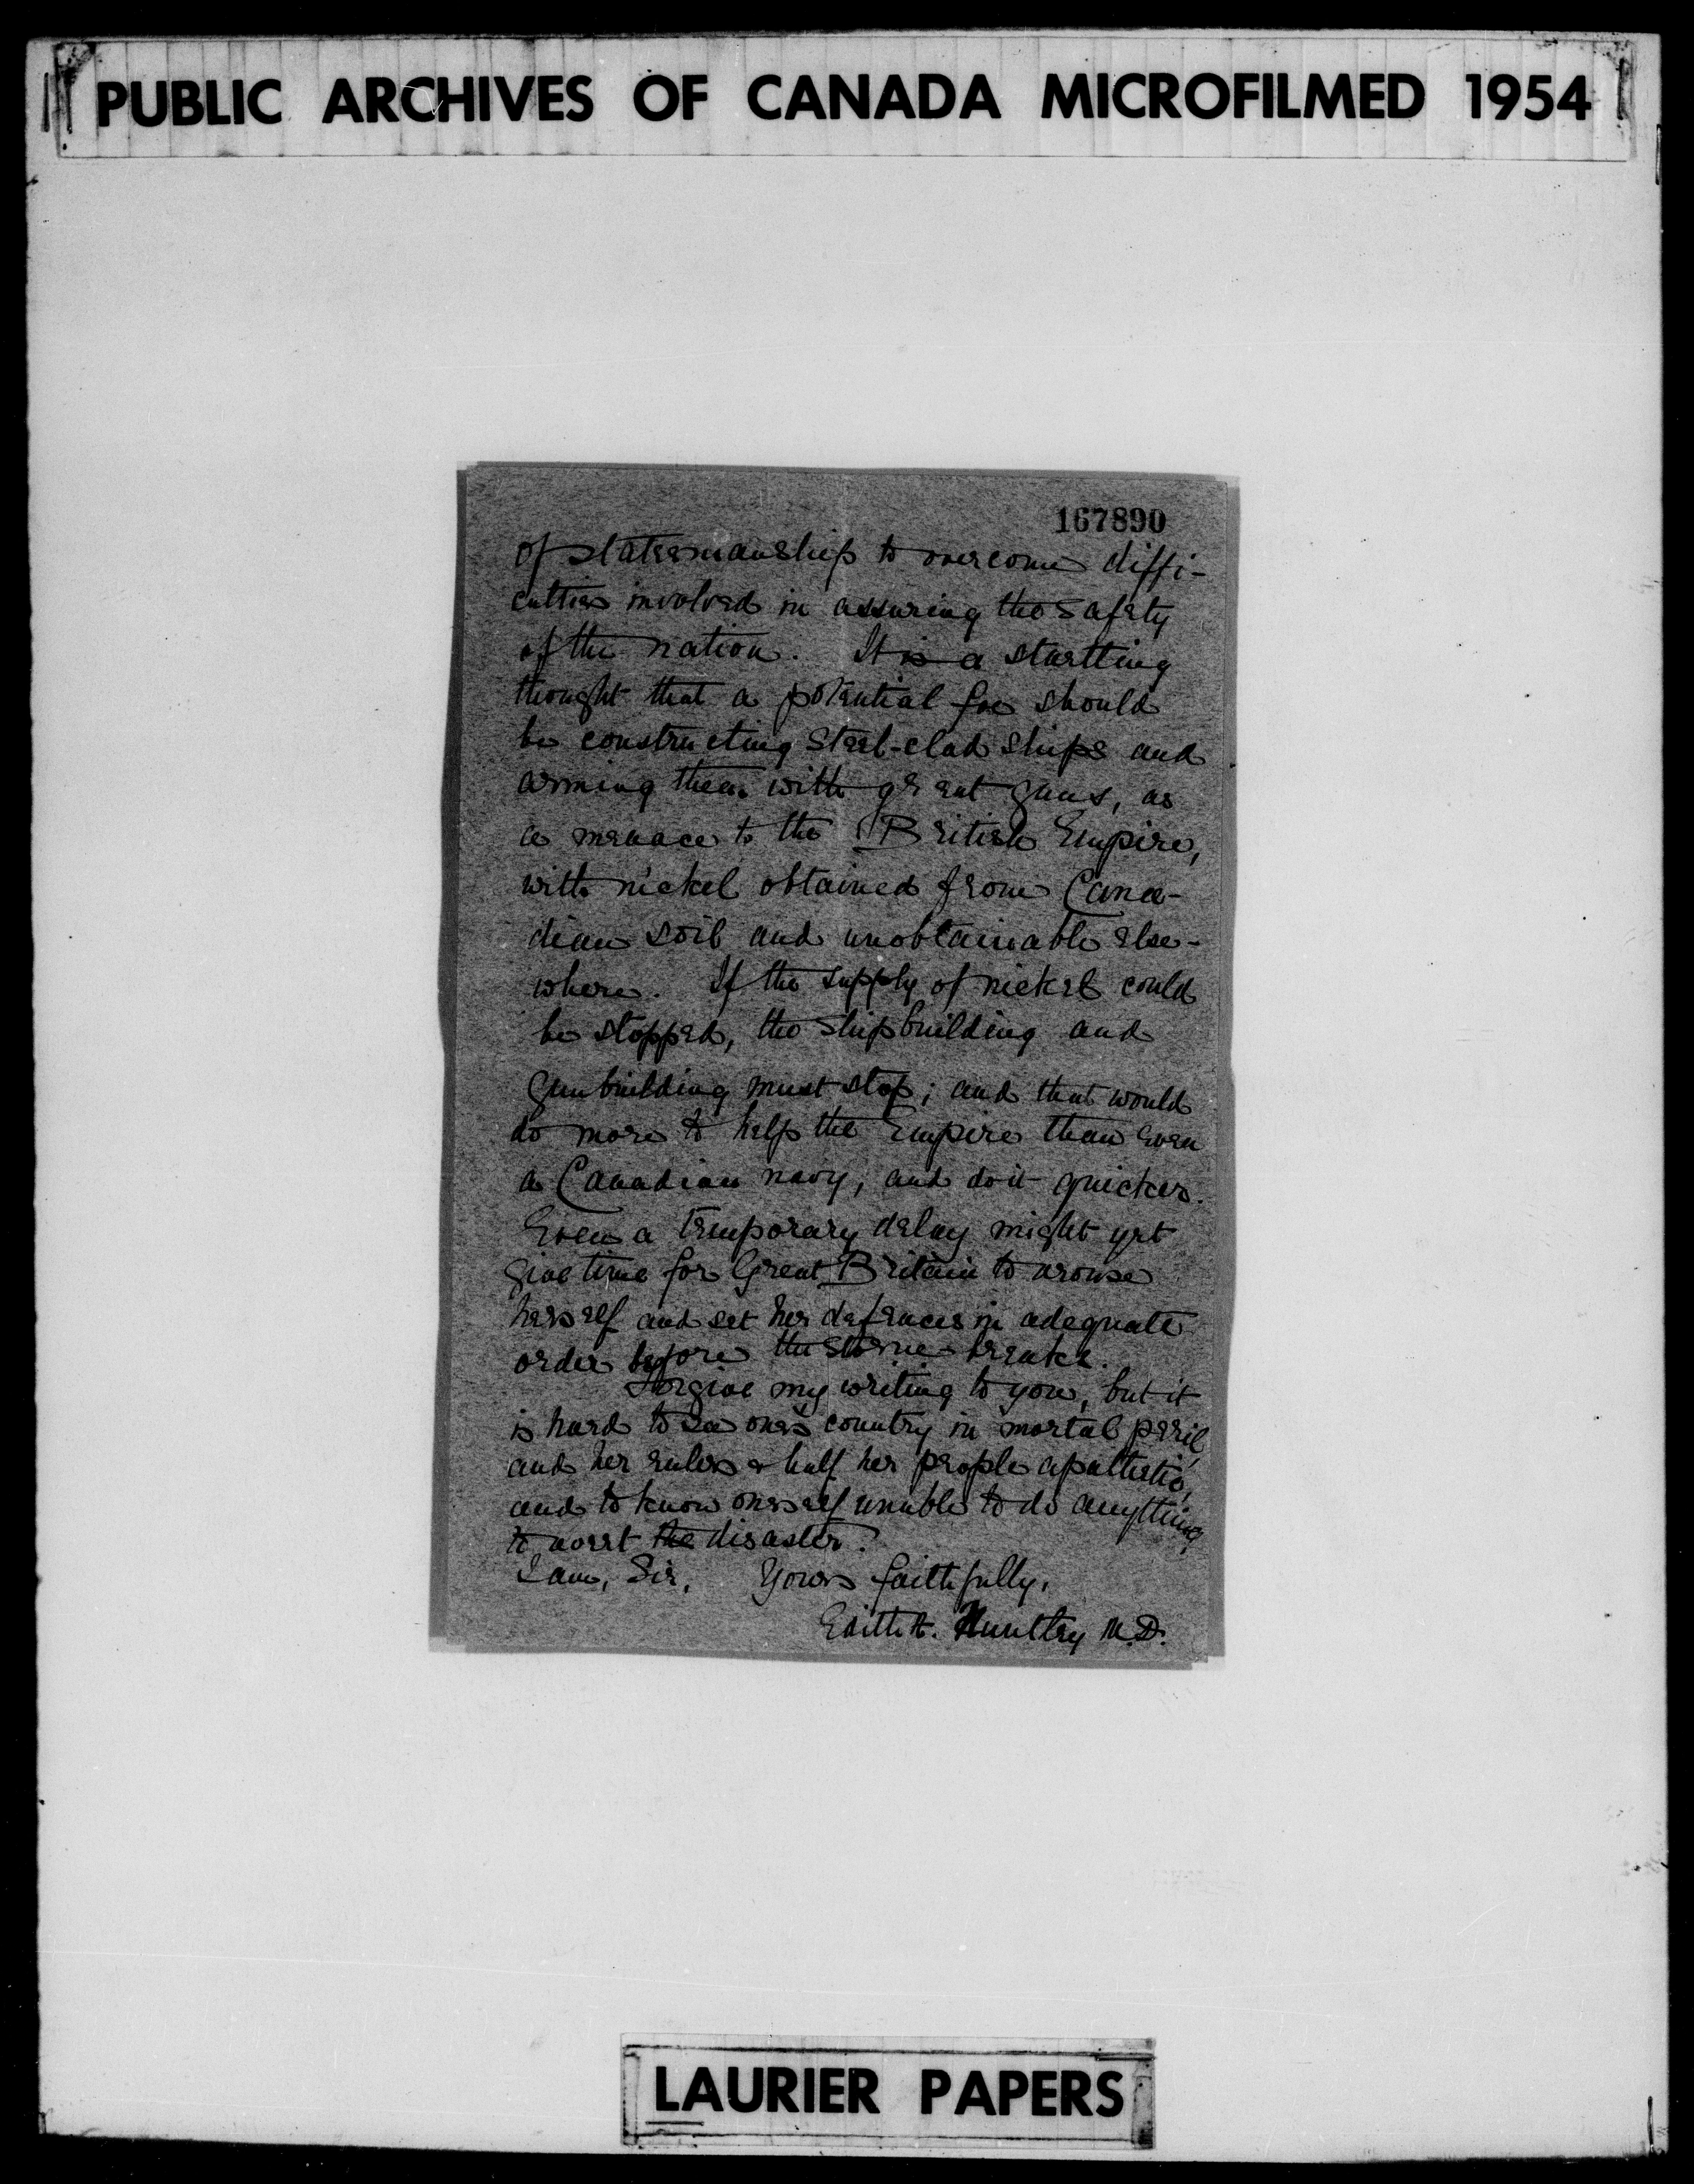 PUBLIC ARCHIVES OF CANADA MICROFILMED 1954
167890
of statesmanship to overcome diffi-
culties involved in assuring the safety
of the nation. It is a startling
thought that a potential foe should
be constructing steel-clad ships and
arming them with great guns, as
a menace to the British Empire,
with nickel obtained from Cana-
dian soil and unobtainable else-
where. If the supply of nickel could
be stopped, the shipbuilding and
gunbuilding must stop; and that would
do more to help the Empire than even
a Canadian navy, and do it quicker.
Even a temporary delay might yet
give time for Great Britain to arouse
herself and set her defences in adequate
order before the storm breaks.
Forgive my writing to you, but it
is hard to see one's country in mortal peril,
and her rulers & half her people apathetic,
and to know oneself unable to do anything
to avert the disaster.
I am, Sir, Yours faithfully,
Edith A. Huntley M.D.
LAURIER PAPERS